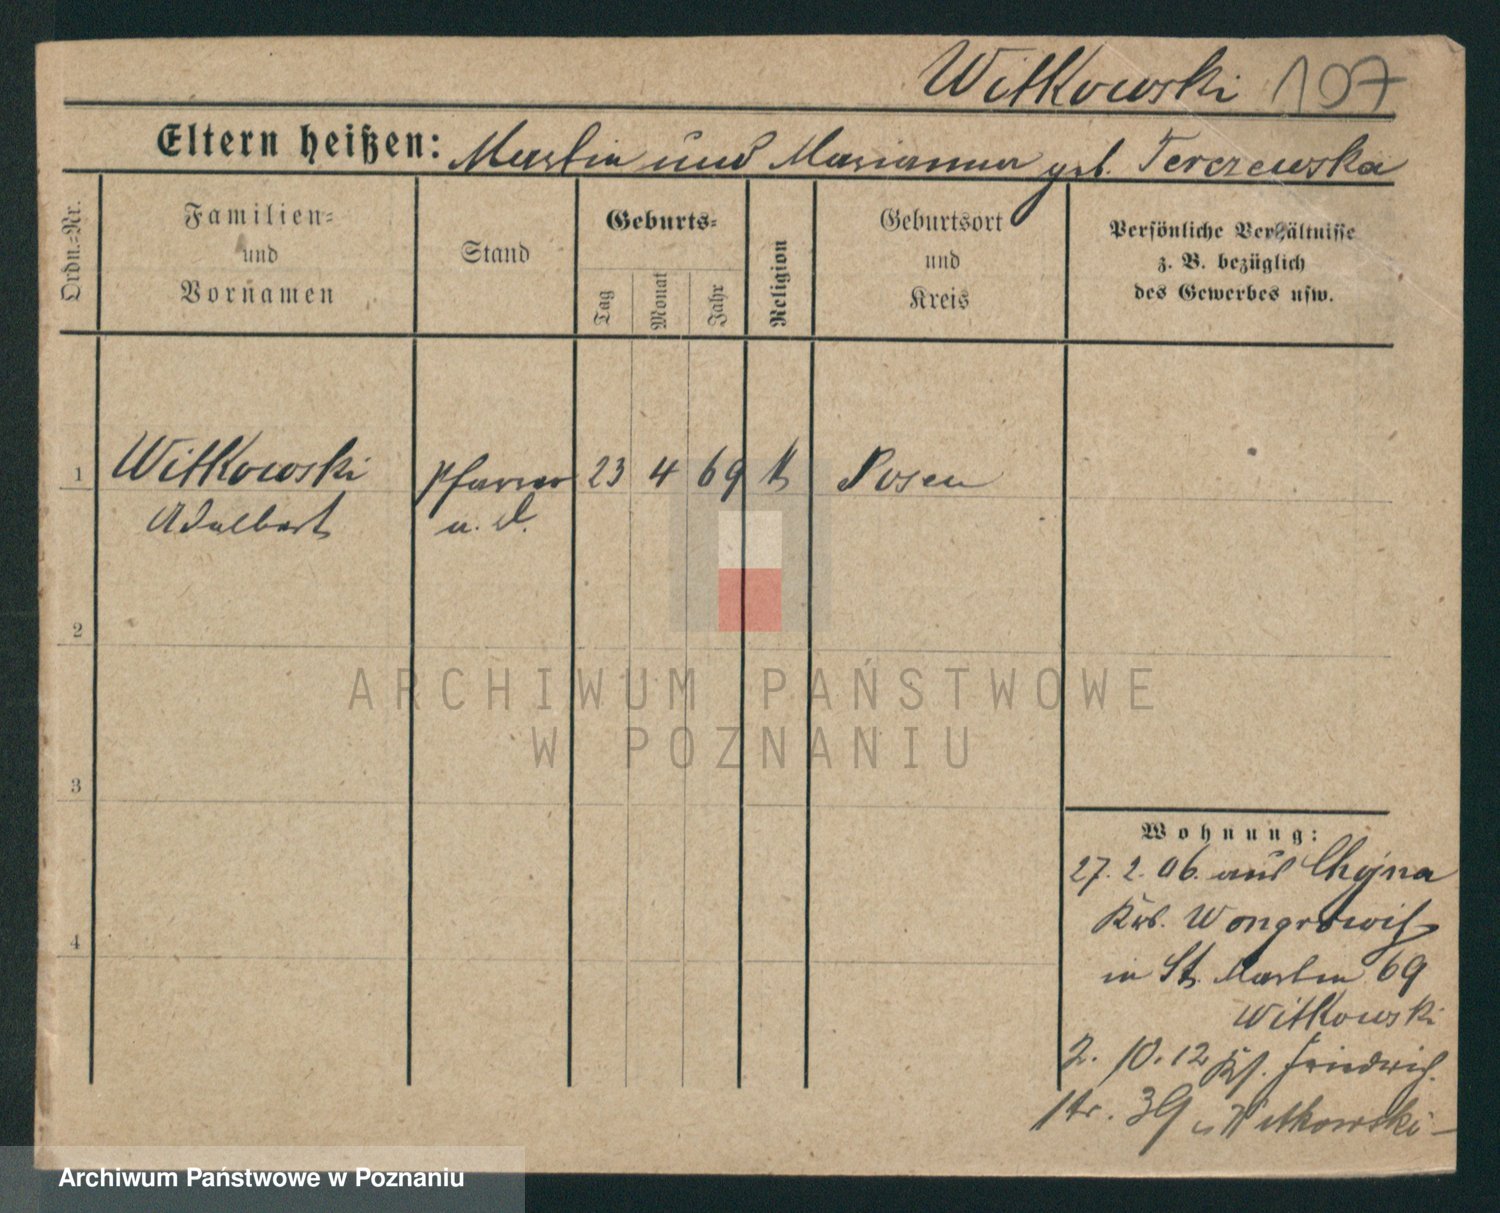 Witkowski 197
Eltern heißen: Martin und Marianna geb. Terczewska
Ordn.=Nr.
Familien=
und
Vornamen
Stand
Geburts=
Tag
Monat
Jahr
Religion
Geburtsort
und
Kreis
Persönliche Verhältnisse
z. B. bezüglich
des Gewerbes usw.
1 Witkowski Pfarrer 23 4 69 k Posen
Adalbert a. D.
2
ARCHIWUM PAŃSTWOWE
W POZNANIU
3
4
Wohnung:
27. 2. 06. aus Chojna
Krs. Wongrowitz
in St. Martin 69
Witkowski
2. 10. 12 Friedrich
str. 39 Witkowski
Archiwum Państwowe w Poznaniu